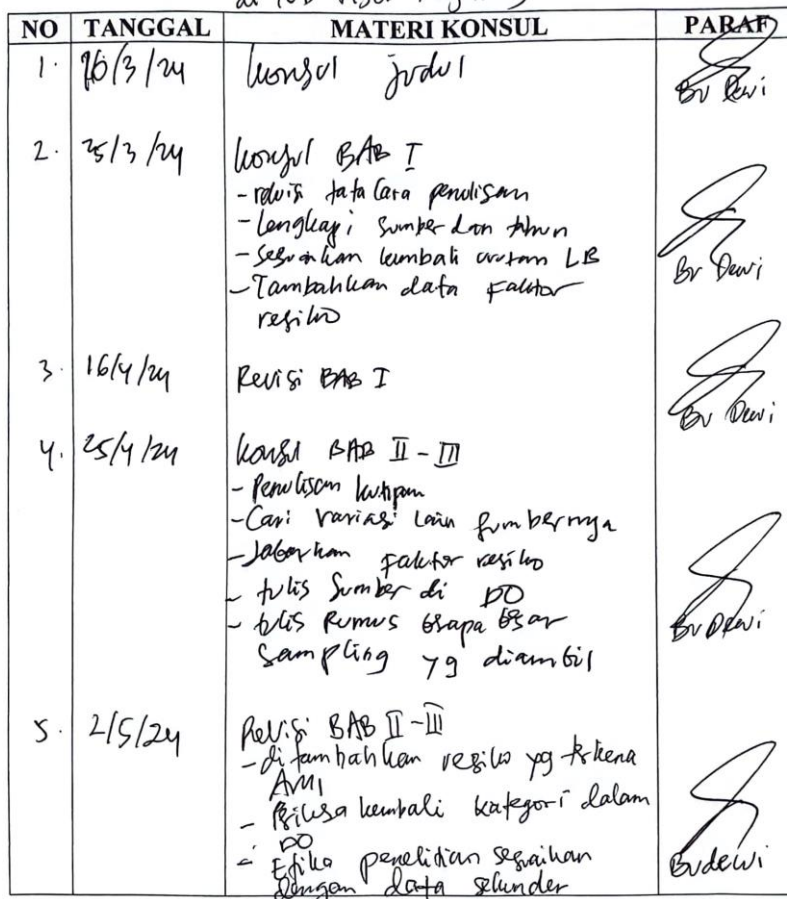 NO TANGGAL MATERI KONSUL PARAF
1. 16/3/24 konsul judul Bu Dewi
2. 25/3/24 konsul BAB I
- revisi tata cara penulisan
- Lengkapi sumber dan tahun
- sesuaikan kembali urutan LB Bu Dewi
- Tambahkan data faktor
resiko
3. 16/4/24 Revisi BAB I Bu Dewi
4. 25/4/24 konsul BAB II - III
- Penulisan kutipan
- Cari variasi lain sumbernya
- Jabarkan faktor resiko
- tulis sumber di DO
- tulis Rumus brapa bsar Bu Dewi
sampling yg diambil
5. 2/5/24 Revisi BAB II - III
- ditambahkan resiko yg trkena
AMI
- Priksa kembali kategori dalam
DO
- Etika penelitian sesuaikan Bu dewi
dengan data sekunder